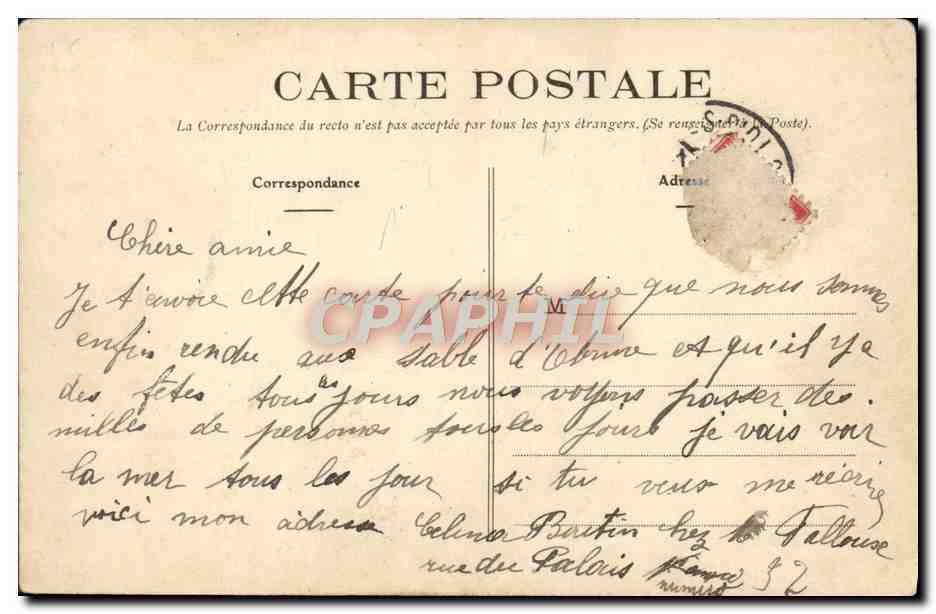 CARTE POSTALE
La Correspondance du recto n'est pas acceptée par tous les pays étrangers. (Se renseigner à la Poste).
Correspondance
Adresse
Chère amie
Je t'envoie cette carte pour te dire que nous sommes
M
CPAPHIL
enfin rendu aux sable d'Olonne et qu'il y a
des fêtes tous les jours nous voyons passer des
milles de personnes tous les jours je vais voir
la mer tous les jour si tu veux me récrire
voici mon adresse Celina Boutin chez
rue du Palais numéro 32